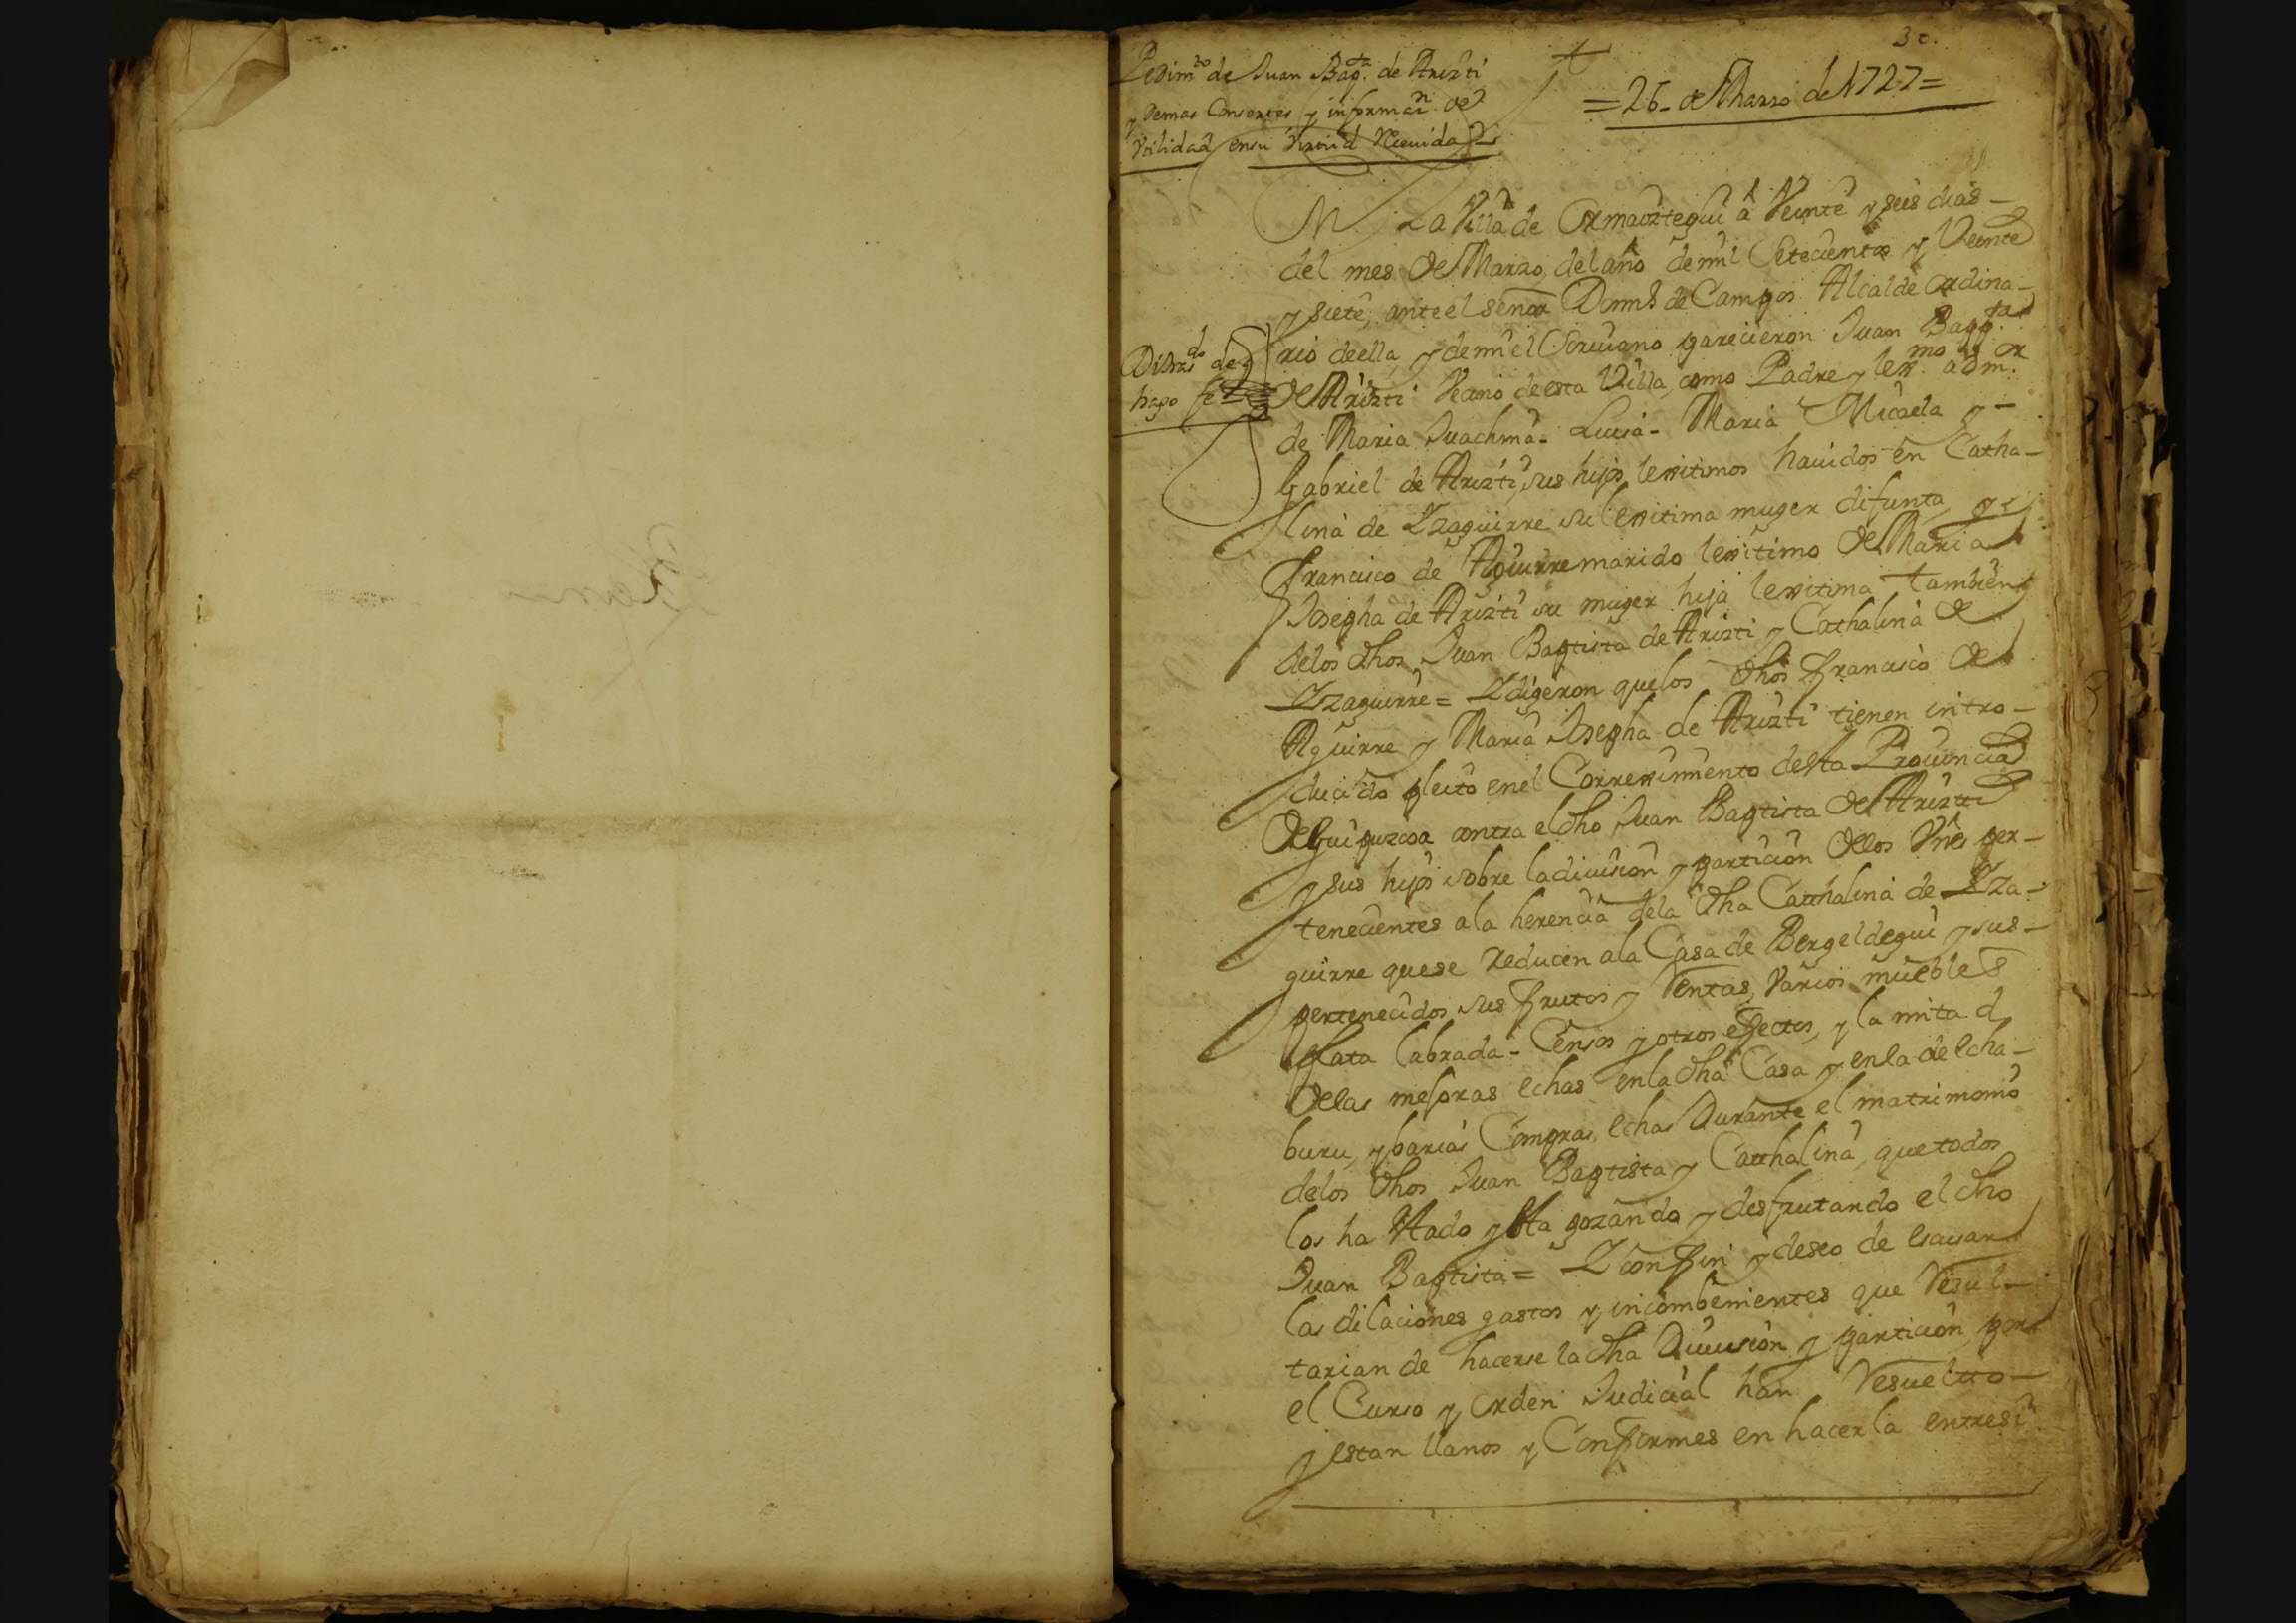 30.
= 26_ de Marzo de 1727 =
Pedim.to de Juan Bap.ta de Arizti
y demas Consortes, y informaz.n de
Utilidad en su Virtud Receuida
En La Villa de Ormaiztegui â Veinte y seis dias _
del mes de Marzo, del año de mil Setecientos y Veinte
y siete, ante el señor Domin.o de Campos Alcalde ordina_
rio de ella, y de mi el Escriuano parecieron Juan Bapp.ta
de Arizti Vecino de esta Villa, como Padre y lex.mo adm.or
de Maria Juachina_ Lucia_ Maria Micaela y _
Gabriel de Arizti, sus hijos lexitimos hauidos en Catha_
lina de Yzaguirre su lexitima muger difunta, y
Francisco de Aguirre marido lexitimo de Maria
Josepha de Arizti su muger hija lexitima tambien
delos dhos Juan Baptista de Arizti y Cathalina de
Yzaguirre = Y digeron quelos dhos Francisco de
Aguirre y Maria Josepha de Arizti tienen intro_
ducido pleito enel Correximiento desta Prouincia
de Guipuzcoa contra el dho Juan Baptista de Arizti
y sus hijos sobre la diuision y particion delos Vnes per_
tenecientes ala herencia dela dha Catthalina de Yza_
guirre que se reducen ala Casa de Bergeldegui y sus _
pertenecidos sus frutos y Rentas, Varios muebles
plata labrada_ Censos y otros effectos, y la mita d
delas mejoras echas enla dha Casa y enla de Echa_
buru, y barias Compras echas Durante el matrimonio
delos dhos Juan Baptista y Catthalina, que todos
los ha Vsado y Esta gozando y desfrutando el dho
Juan Baptista = Y con fin y deseo de Escusar
las dilaciones gastos y incombenientes que Resul_
tarian de hacerse la dha Diuision y particion por
el Curso y orden Judicial han Resueltto _
y estan llanos y Conformes en hacerla entresi
hago fe